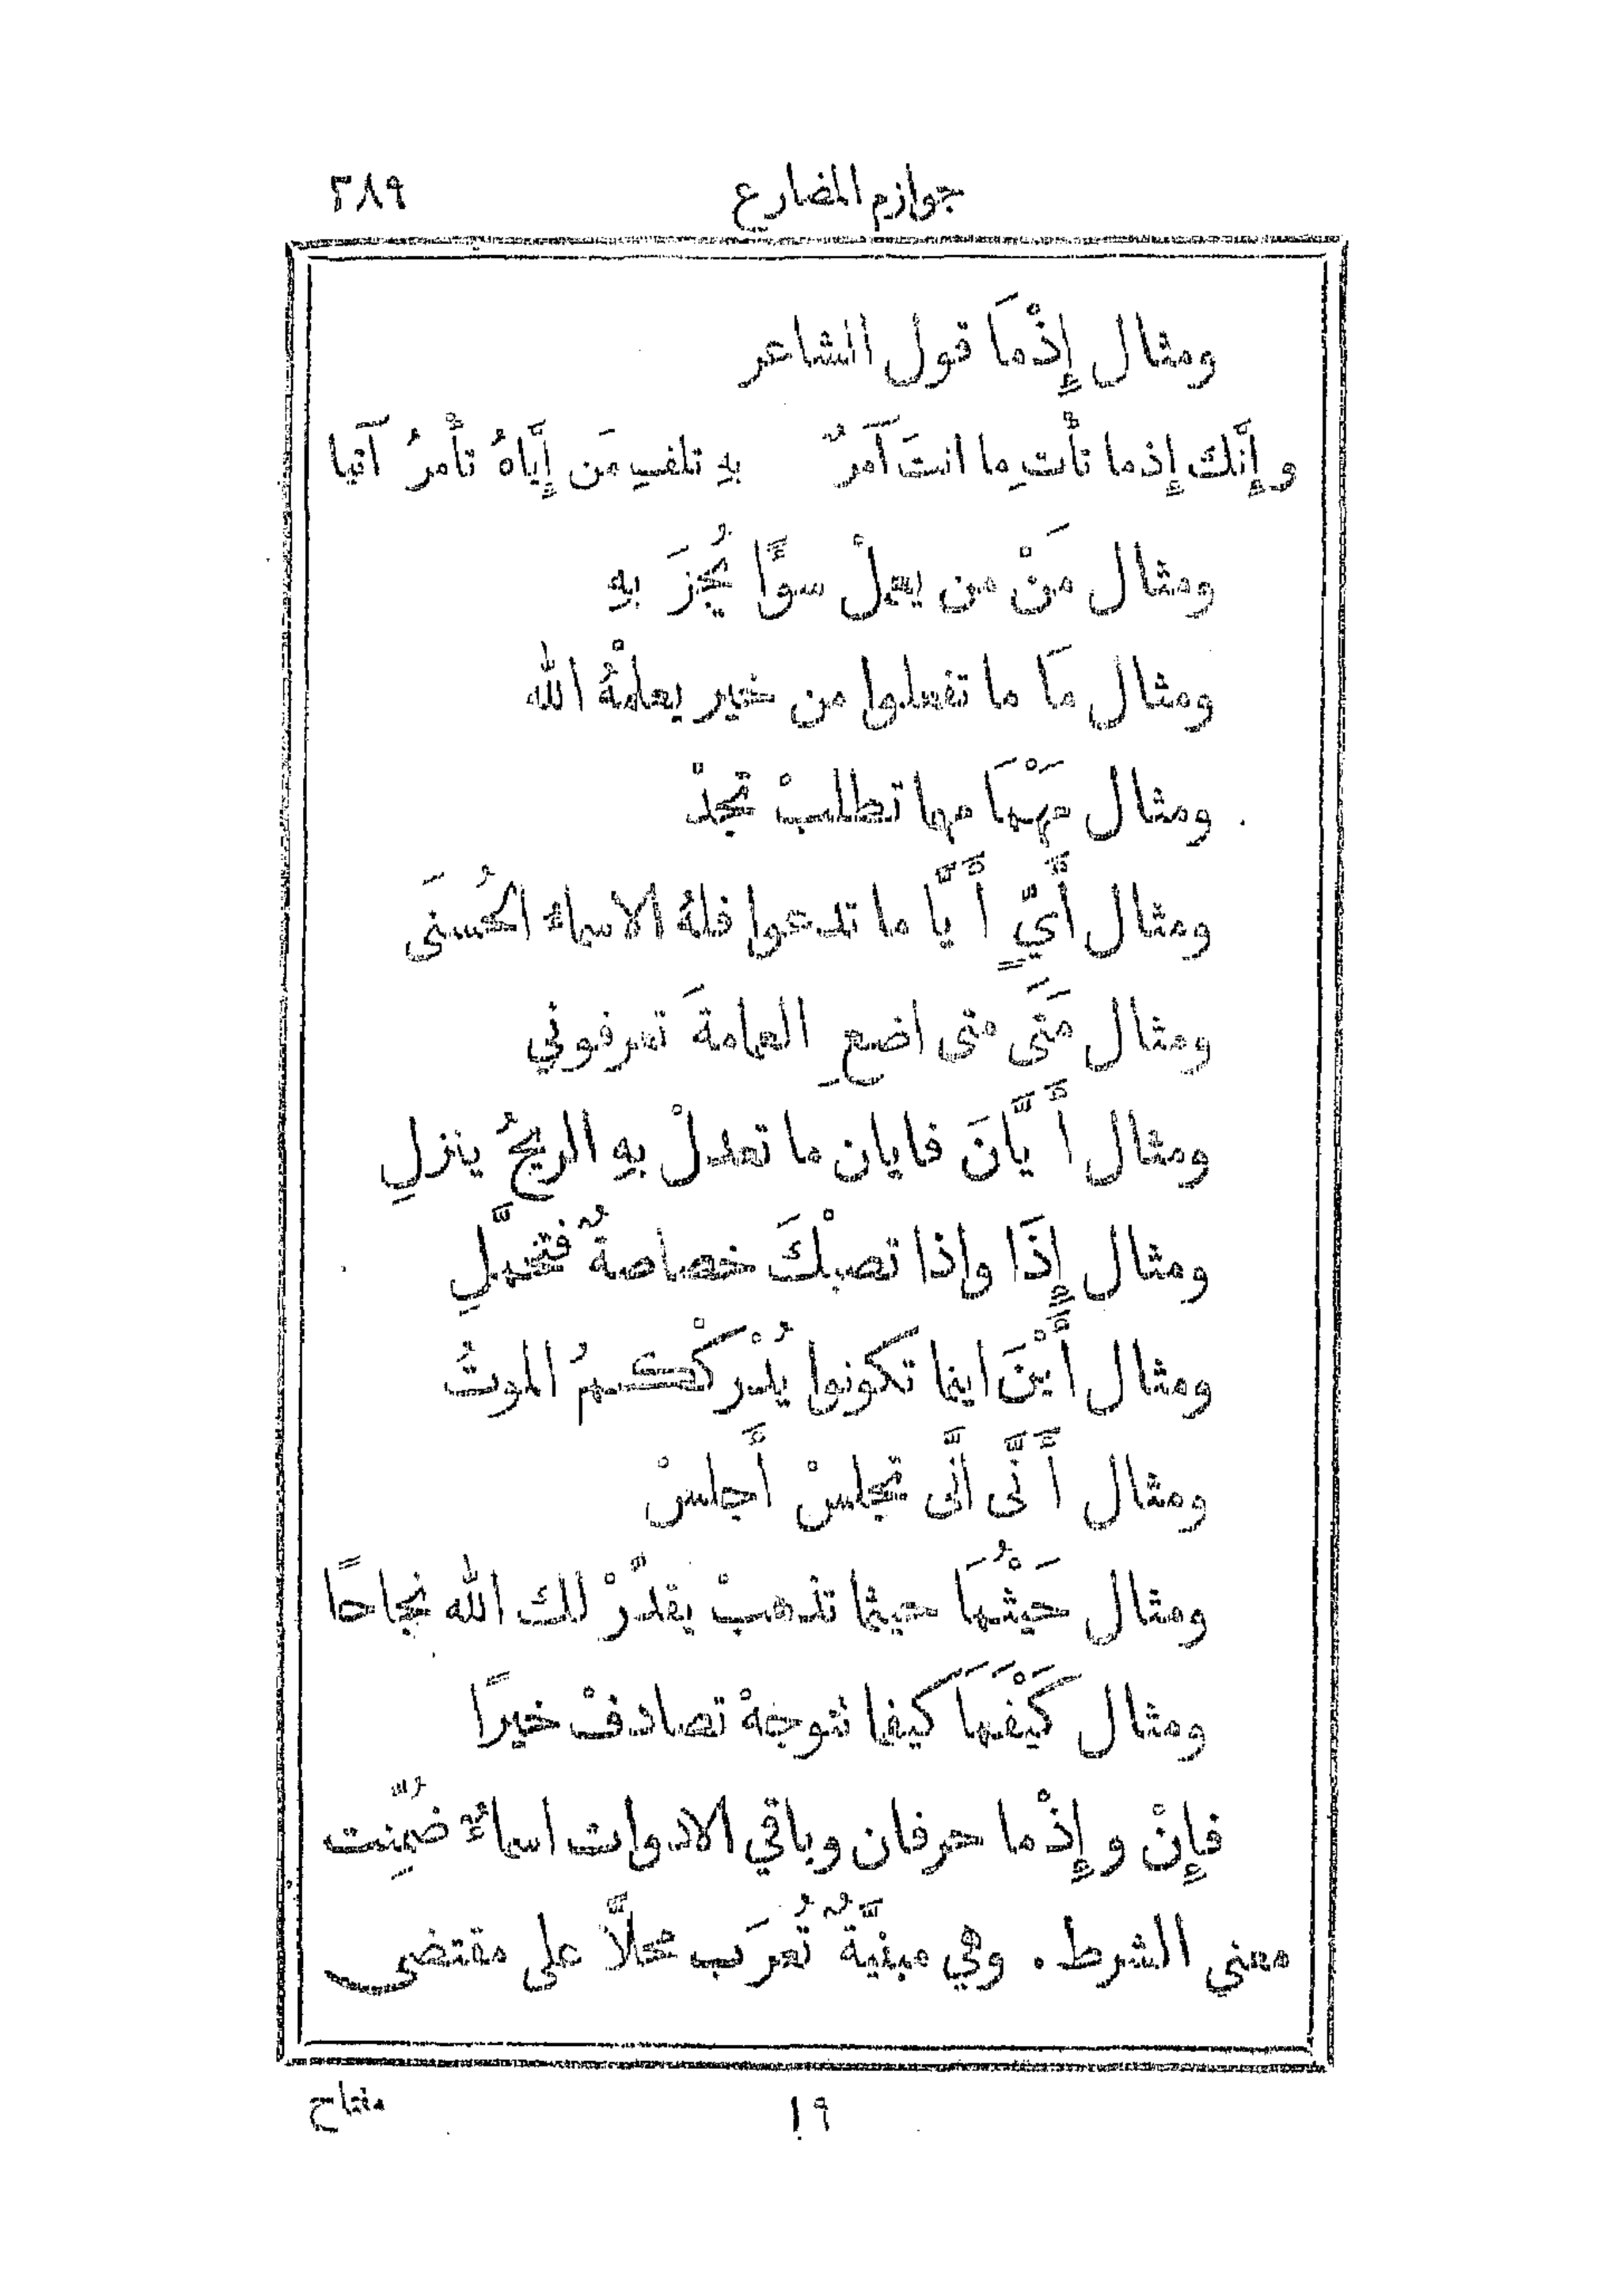 جوازم المضارع ٢٨٩
ومثال إِذْمَا قول الشاعر
وإِنَّك إِذما تأْتِ ما انتَ آمَرٌ بهِ تلفِ مَن إِيَّاهُ تأْمرُ آتيا
ومثال مَنْ من يعملْ سوًّا يُجزَ بهِ
ومثال مَا ما تفعلوا من خير يعلمْهُ الله
ومثال مَهْمَا مهما تطلبْ تجدْ
ومثال أَيٍّ أَيًّا ما تدعوا فلهُ الاسماءُ الحُسنَى
ومثال مَتَى متى اضعِ العمامةَ تعرفوني
ومثال أَيَّانَ فايان ما تعدلْ بهِ الريحُ ينزلِ
ومثال إِذَا واذا تصبْكَ خصاصةٌ فتحمَّلِ
ومثال أَيْنَ اينما تكونوا يُدْرِكْكمُ الموتُ
ومثال أَنَّى أنَّى تجلسْ أَجلسْ
ومثال حَيْثُمَا حيثما تذهبْ يقدّرْ لك الله نجاحًا
ومثال كَيْفَمَا كيفما تتوجهْ تصادفْ خيرًا
فإِنْ وإِذْما حرفان وباقي الادوات اسماءٌ ضُمِّنت
معنى الشرط. وهي مبنيَّةٌ تُعرَب محلاًّ على مقتضى
١٩ مفتاح